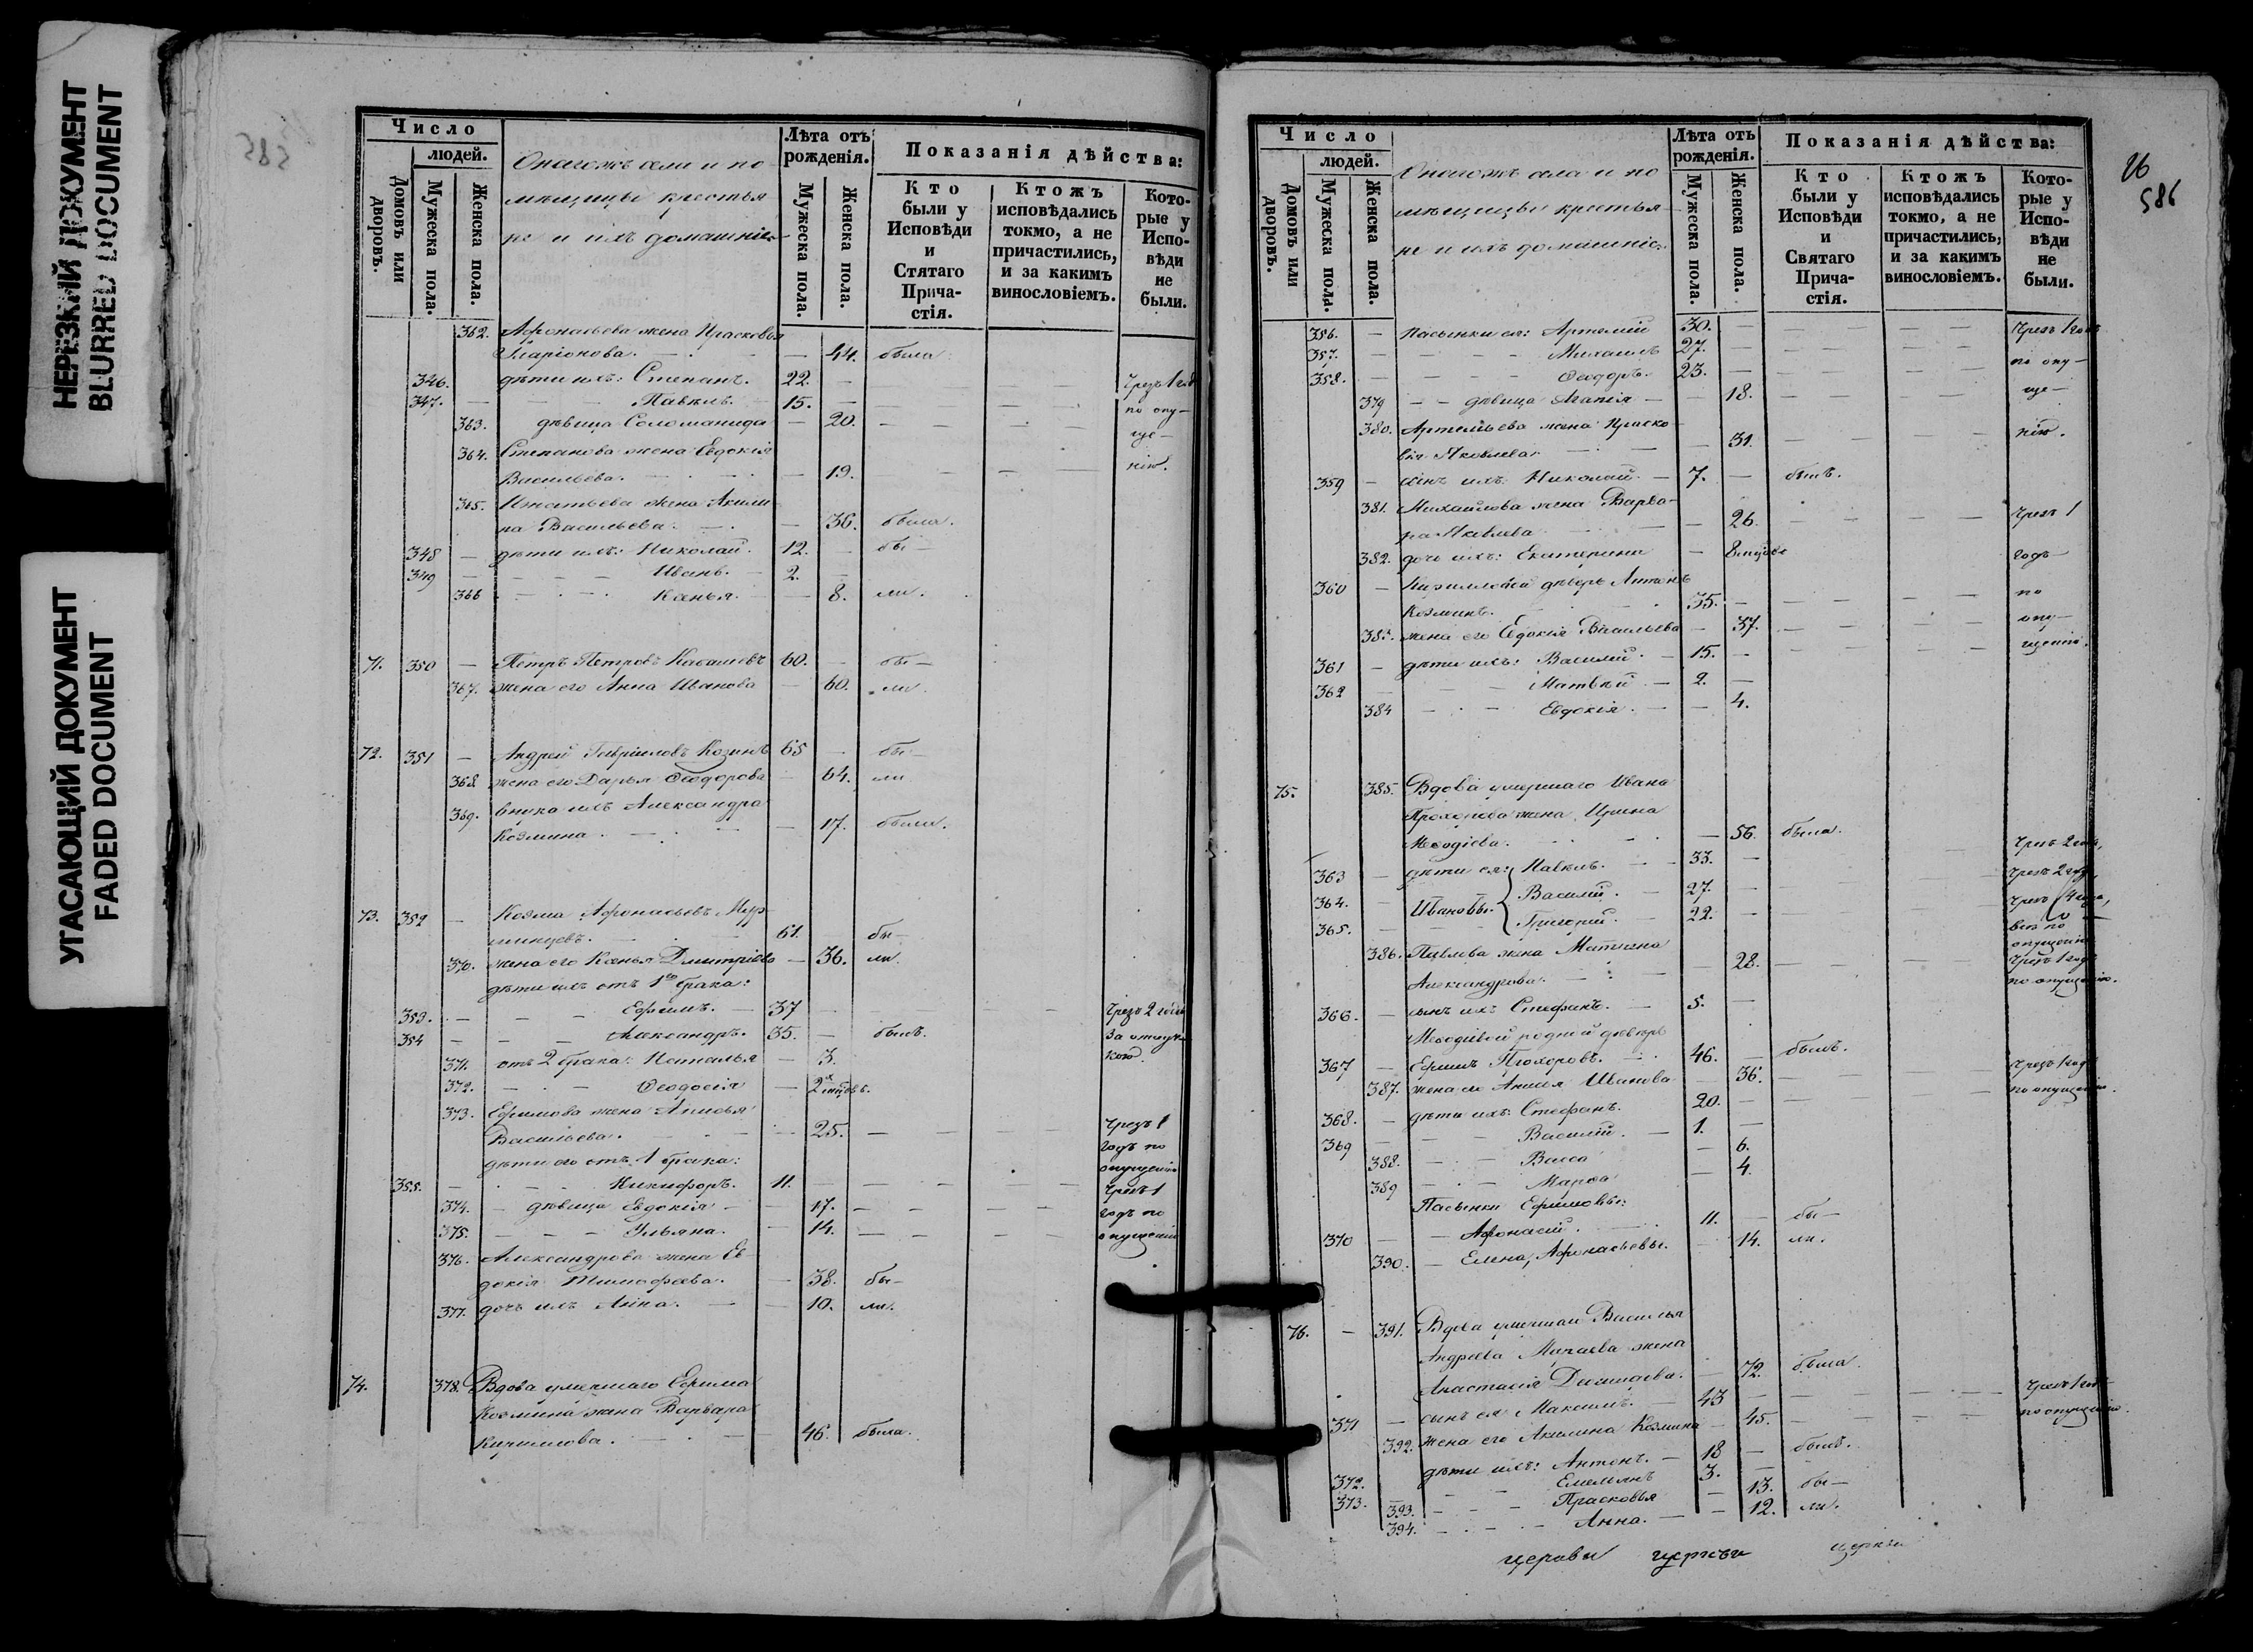 НЕРЕЗКИЙ ДОКУМЕНТ
BLURRED DOCUMENT
УГАСАЮЩИЙ ДОКУМЕНТ
FADED DOCUMENT
585
Число
людей.
Домовъ или дворовъ.
Мужеска пола.
Женска пола.
Онагожъ села и по
мѣщицы крестья
не и ихъ домашніе
Лѣта отъ рожденія.
Мужеска пола.
Женска пола.
Показанія дѣйства:
Кто были у Исповѣди и Стятаго Прича-стія.
Ктожъ исповѣдались токмо, а не причастились, и за какимъ винословіемъ.
Кото-рые у Испо-вѣди не были.
362. Афонасьева жена Прасковья
Иларіонова. — 44. была
346. дѣти ихъ: Степанъ. 22. — Чрезъ 1 годъ
347. — Павелъ. 15. — по опу-
363. дѣвица Соломанида — 20. — ще-
364. Степанова жена Евдокія
Васильева. — 19. — нію.
365. Игнатьева жена Акили
на Васильева. — 36. была.
348 — дѣти ихъ: Николай. 12. — бы-
349 — Иванъ. — 2. —
366 — Ксенья. — 8. ли.
71. 350 — Петръ Петровъ 60. — бы-
367. жена его Анна Иванова — 60. ли.
72. 351 — Андрей Гавриловъ Козинъ 65 — бы-
368. жена его Дарья Ѳеодорова — 64. ли
369. внука ихъ Александра
Козмина. — 17. была.
73. 352 — Козма Афонасьевъ
61. бы-
370. жена его Ксенья Дмитріева — 36. ли.
дѣти ихъ отъ 1го брака:
353. — Ефимъ. — 37 — Чрезъ 2 года
354 — Александръ. 35. — былъ. За отлуч-
371. отъ 2 брака: Наталья — 3. кою.
372. — Ѳеодосія — 2хъ мцовъ.
373. Ефимова жена Анисья
Васильева. — 25. — Чрезъ 1
дѣти его отъ 1 брака: годъ по опущенію
355. — Никифоръ. 11. — Чрезъ 1
374. — дѣвица Евдокія — 17. — годъ по
375. — Ульяна. — 14. — опущенію
376. Александрова жена Ев-
докія Тимофеева. — 38. бы-
377. дочь ихъ Анна. — 10. ли.
74. 378. Вдова умершаго Ефима
Козмина жена Варвара
Кирилова. — 46. была.
26
586
Число
людей.
Домовъ или дворовъ.
Мужеска пола.
Женска пола.
Онагожъ села и по
мѣщицы крестья-
не и ихъ домашніе
Лѣта отъ рожденія.
Мужеска пола.
Женска пола.
Показанія дѣйства:
Кто были у Исповѣди и Святаго Прича-стія.
Ктожъ исповѣдались токмо, а не причастились, и за какимъ винословіемъ.
Кото-рые у Испо-вѣди не были.
356. — Пасынки ея: Артемій 30. — Чрезъ 1 годъ
357. — Михаилъ 27. —
358. — Ѳеодоръ. 23. — по опу-
379 — дѣвица Агапія — 18. — ще-
380. Артемьева жена Праско-
вія Яковлева — 31. — нію.
359 — сынъ ихъ Николай — 7. — былъ.
381. Михайлова жена Варва-
ра Яковлева — 26. — Чрезъ 1
382. дочь ихъ: Екатерина — 8 мцовъ годъ
360 — дѣверь Антонъ по
Козминъ. 35. —
383. жена его Евдокія Васильева — 37. — опу-
361 — дѣти ихъ: Василій. — 15. — щенію.
362 — Матвѣй — 2. —
384 — Евдокія. — 4.
75. 385. Вдова умершаго Ивана
Прохорова жена Ирина
Меѳодіева. — 56. была.
363 — дѣти ея: Павелъ. — 33. — Чрезъ 2 года,
364. — Ивановы: Василій. — 27. — Чрезъ 2 года,
365. — Григорій. — 22. — Чрезъ 4 года,
всѣ по опущенію
386. Павлова жена Матрена
Александрова. — 28. — Чрезъ 1 годъ по опущенію.
366. — сынъ ихъ Стефанъ. — 5. —
Меѳодіевой родной дѣверь
367 — Ефимъ Прохоровъ. 46. — былъ.
387. жена его Анисья Иванова — 36. — Чрезъ 1 годъ
368. — дѣти ихъ: Стефанъ. 20. — по опущенію.
369 — Василій. — 1. —
388. — Васса — 6.
389 — Марѳа — 4.
Пасынки Ефимовы:
370 — Афонасій. 11. — бы-
390. — Елена, Афонасьевы. 14. ли.
76. — 391. Вдова умершаго Василья
Андреева жена
Анастасія — 72. была.
371 — сынъ ея Максимъ. — 43 — Чрезъ 1 годъ
392. жена его Акилина Козмина — 45. — по опущенію.
372. дѣти ихъ: Антонъ. — 18 — былъ.
373. Емельянъ 3. —
393. — Прасковья — 13. бы-
394. — Анна. — 12. ли.
церкви церкви церкви